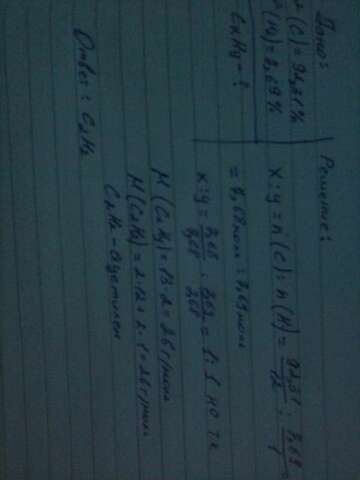 Дано:
ω(C) = 92,31%
ω(H) = 7,69%
CxHy - ?
Решение:
x : y = n(C) : n(H) = 92,31/12 : 7,69/1
= 7,68 моль = 7,69 моль
x : y = 7,68/7,68 : 7,69/7,68 = 1 : 1 но тк
M(CxHy) = 13 · 2 = 26 г/моль
M(C2H2) = 2·12 + 2·1 = 26 г/моль
C2H2 - ацетилен
Ответ: C2H2